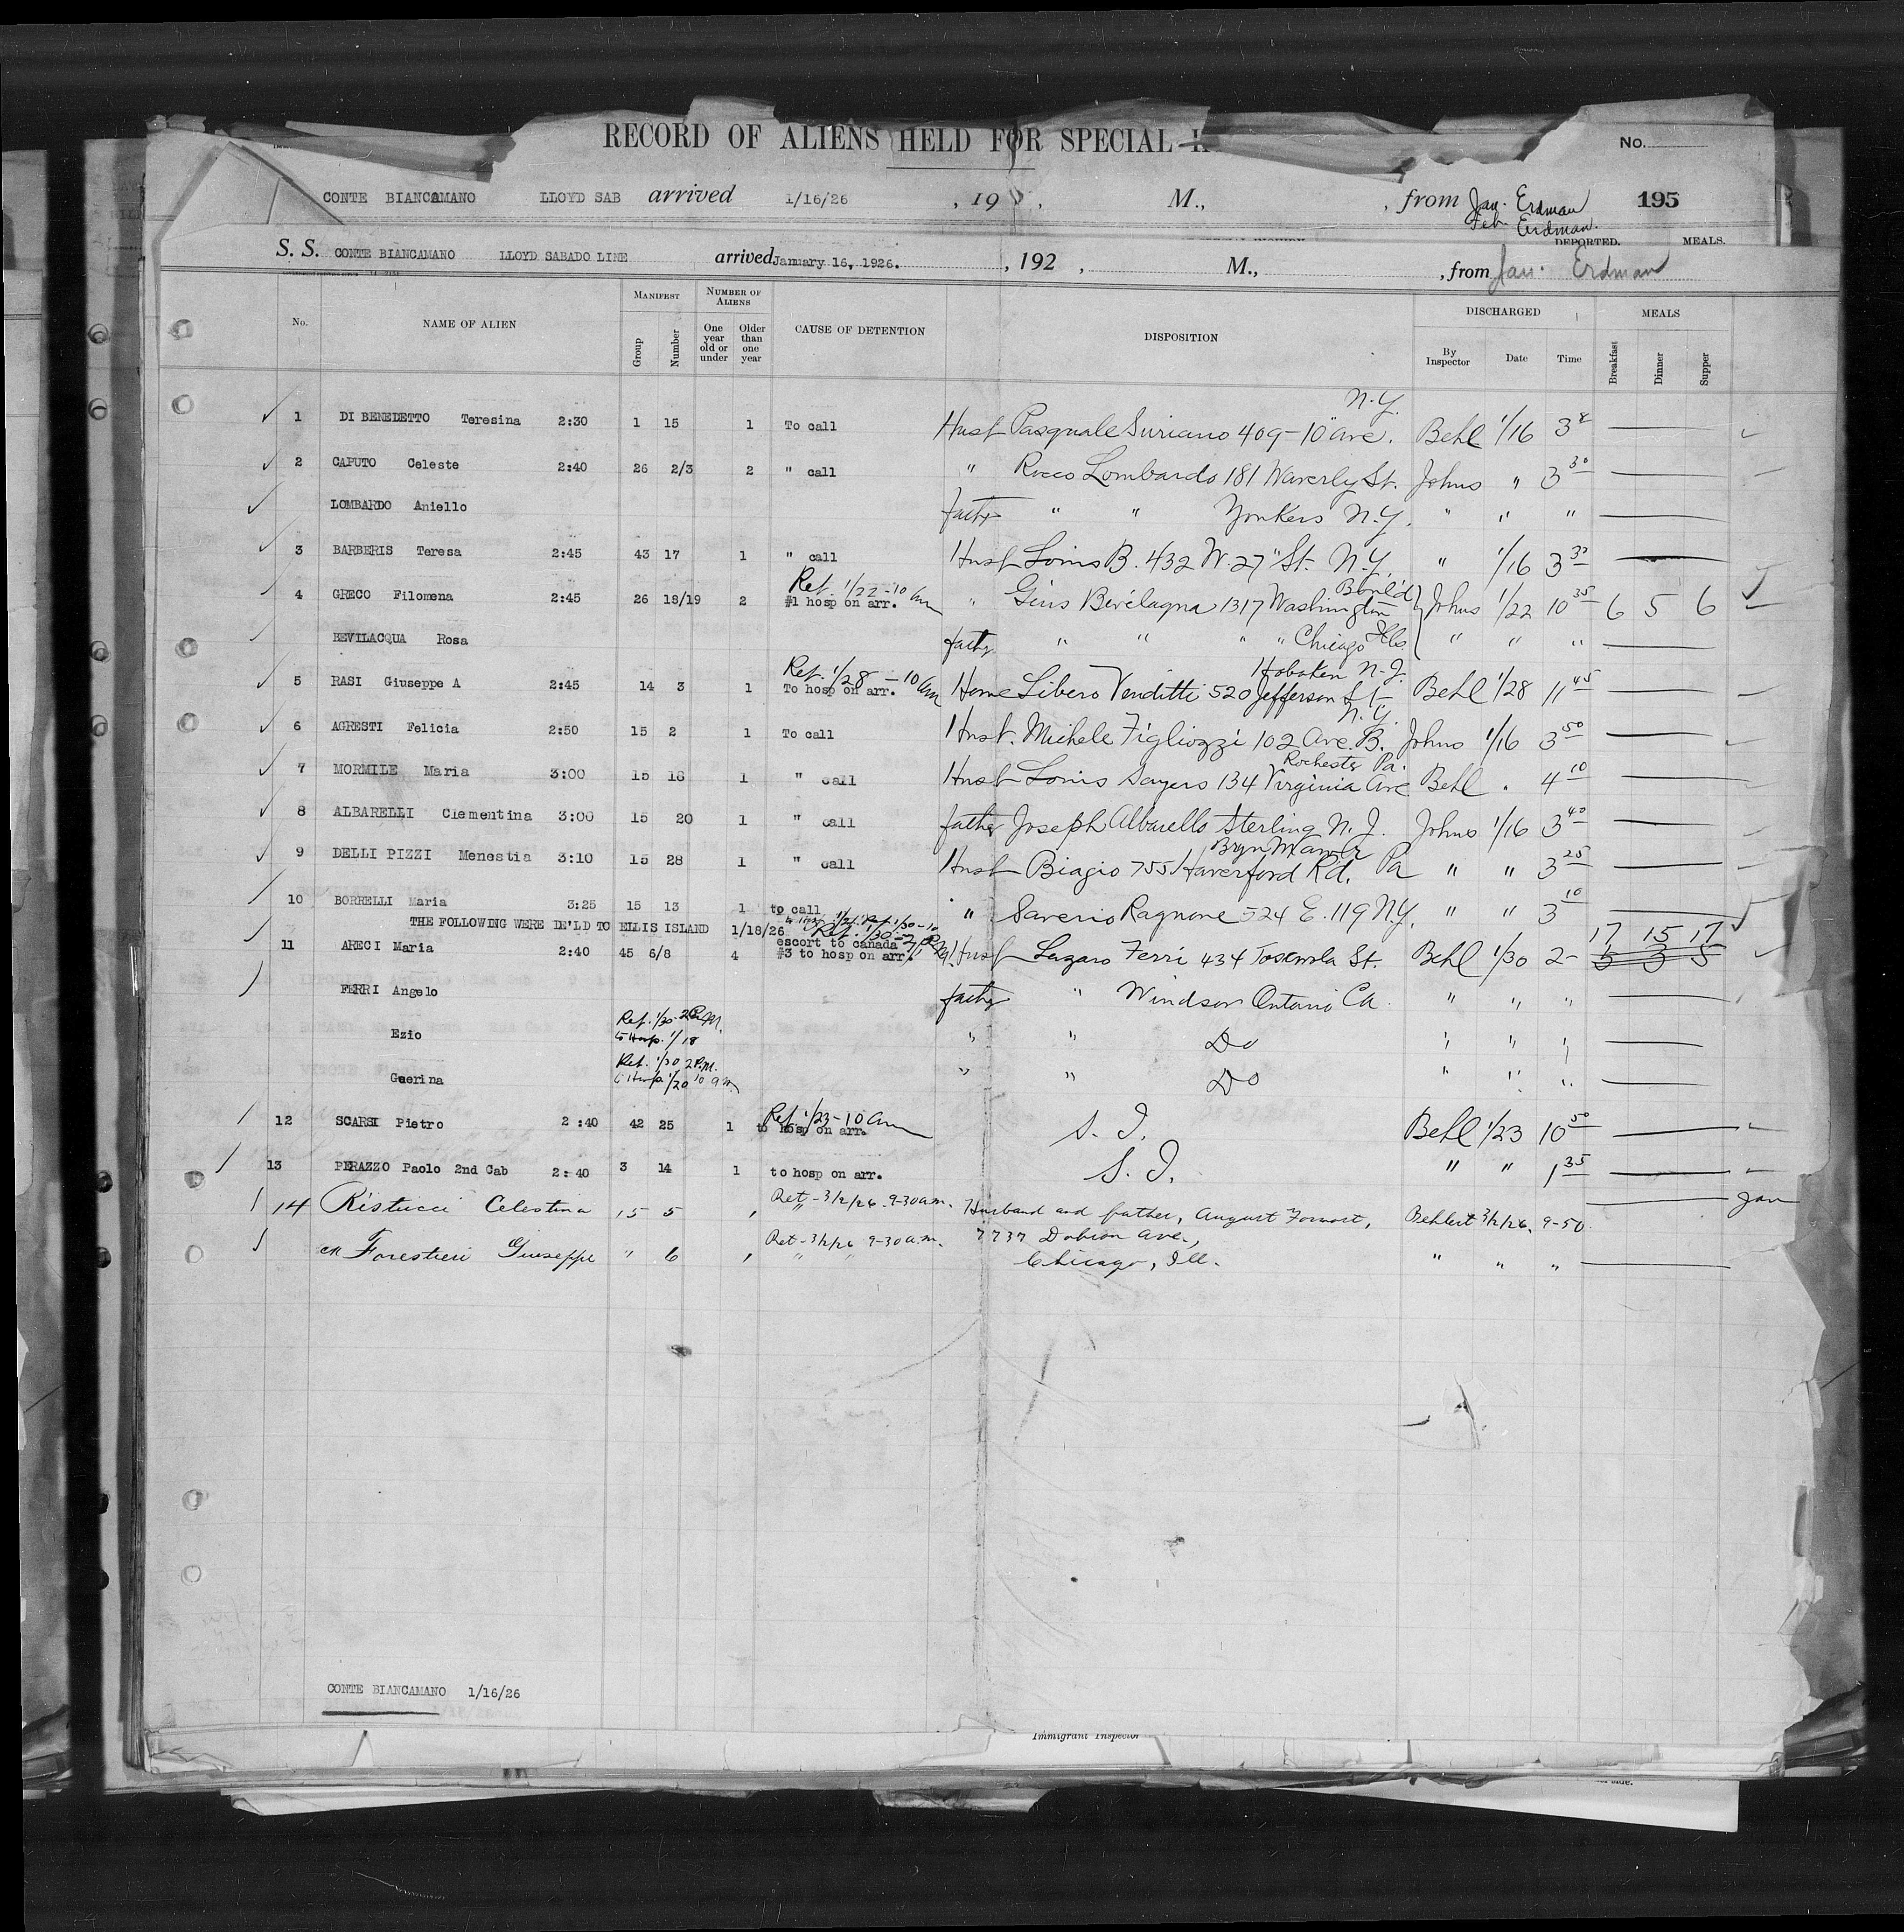 RECORD OF ALIENS HELD FOR SPECIAL
No.
CONTE BIANCAMANO LLOYD SAB arrived 1/16/26 , 19 , M., , from Jan. Erdman 195
Feb Erdman.
DEPORTED. MEALS.
S. S. CONTE BIANCAMANO LLOYD SABADO LINE arrived January 16, 1926. , 192 , M., , from Jan. Erdman
No. NAME OF ALIEN MANIFEST Group Number NUMBER OF ALIENS One year old or under Older than one year CAUSE OF DETENTION DISPOSITION DISCHARGED By Inspector Date Time MEALS Breakfast Dinner Supper
N.Y.
1 DI BENEDETTO Teresina 2:30 1 15 1 To call Husb Pasquale Suriano 409-10" Ave. Behl 1/16 3
2 CAPUTO Celeste 2:40 26 2/3 2 " call " Rocco Lombardo 181 Waverly St. Johns " 3 30
LOMBARDO Aniello father " " Yonkers N.Y. " " "
3 BARBERIS Teresa 2:45 43 17 1 " call Husb Louis B. 432 W. 27" St. N.Y. " 1/16 3 30
Ret. 1/22-10 am
4 GRECO Filomena 2:45 26 18/19 2 #1 hosp on arr. " Gius Bevilaqna 1317 Washington Boul'd Johns 1/22 10 35 6 5 6
BEVILACQUA Rosa father " " " " Chicago Ills " " "
Ret. 1/28-10 am Hoboken N.J.
5 RASI Giuseppe A 2:45 14 3 1 To hosp on arr. Home Libero Venditti 520 Jefferson St Behl 1/28 11 45
N.Y.
6 AGRESTI Felicia 2:50 15 2 1 To call Husb. Michele Figliozzi 102 Ave. B. Johns 1/16 3 50
Rochester Pa.
7 MORMILE Maria 3:00 15 16 1 " call Husb Louis Sayers 134 Virginia Ave Behl " 4 10
8 ALBARELLI Clementina 3:00 15 20 1 " call father Joseph Albarello Sterling N.J. Johns 1/16 3 40
Bryn Mawr
9 DELLI PIZZI Menestia 3:10 15 28 1 " call Husb Biagio 755 Haverford Rd. Pa " " 3 25
10 BORRELLI Maria 3:25 15 13 1 to call " Saverio Ragnone 524 E. 119 N.Y. " " 3 10
THE FOLLOWING WERE DE'LD TO ELLIS ISLAND 1/18/26 Ret. 1/30-2 P.M. 17 15 17
escort to canada
11 ARECI Maria 2:40 45 6/8 4 #3 to hosp on arr. Husb Lazaro Ferri 434 St. Behl 1/30 2- 5 3 5
FERRI Angelo father " Windsor Ontario Ca. " " "
Ret. 1/30-2 P.M.
Ezio to Hosp. 1/18 " " Do " " "
Ret. 1/30 2 P.M.
Guerina to Hosp. 1/20 10 a.m. " " Do " " "
Ret. 1/23-10 am
12 SCARSI Pietro 2:40 42 25 1 to hosp on arr. S. I. Behl 1/23 10 50
13 PERAZZO Paolo 2nd Cab 2:40 3 14 1 to hosp on arr. S. I. " " 1 35
14 Ristucci Celestina 15 5 1 Ret-3/2/26-9-30 a.m. Husband and father, August Fornost, Behlert 3/2/26. 9-50 Jan
ch Forestieri Giuseppe " 6 1 Ret-3/2/26 9-30 a.m. 7737 Dobson Ave.,
Chicago, Ill. " " "
CONTE BIANCAMANO 1/16/26
Immigrant Inspector
side.